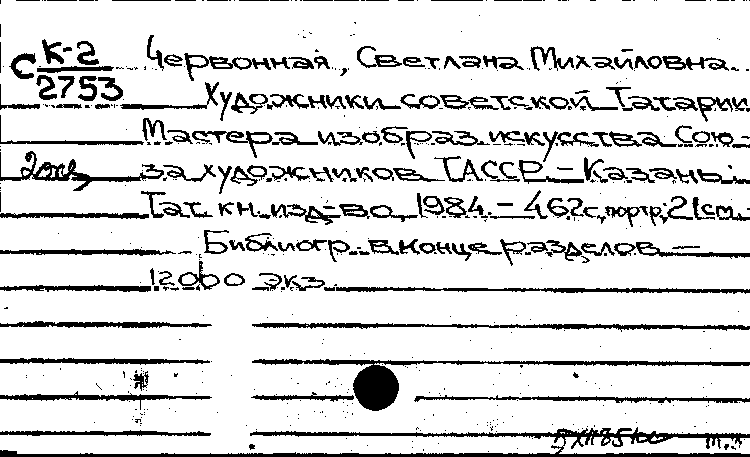 С К-2
2753
Червонная, Светлана Михайловна.
Художники советской Татарии
Мастера изобраз. искусства Сою-
за художников ТАССР. – Казань:
Тат. кн. изд-во, 1984. – 462с., портр; 21см. –
Библиогр. в конце разделов –
12000 экз.
2 экз